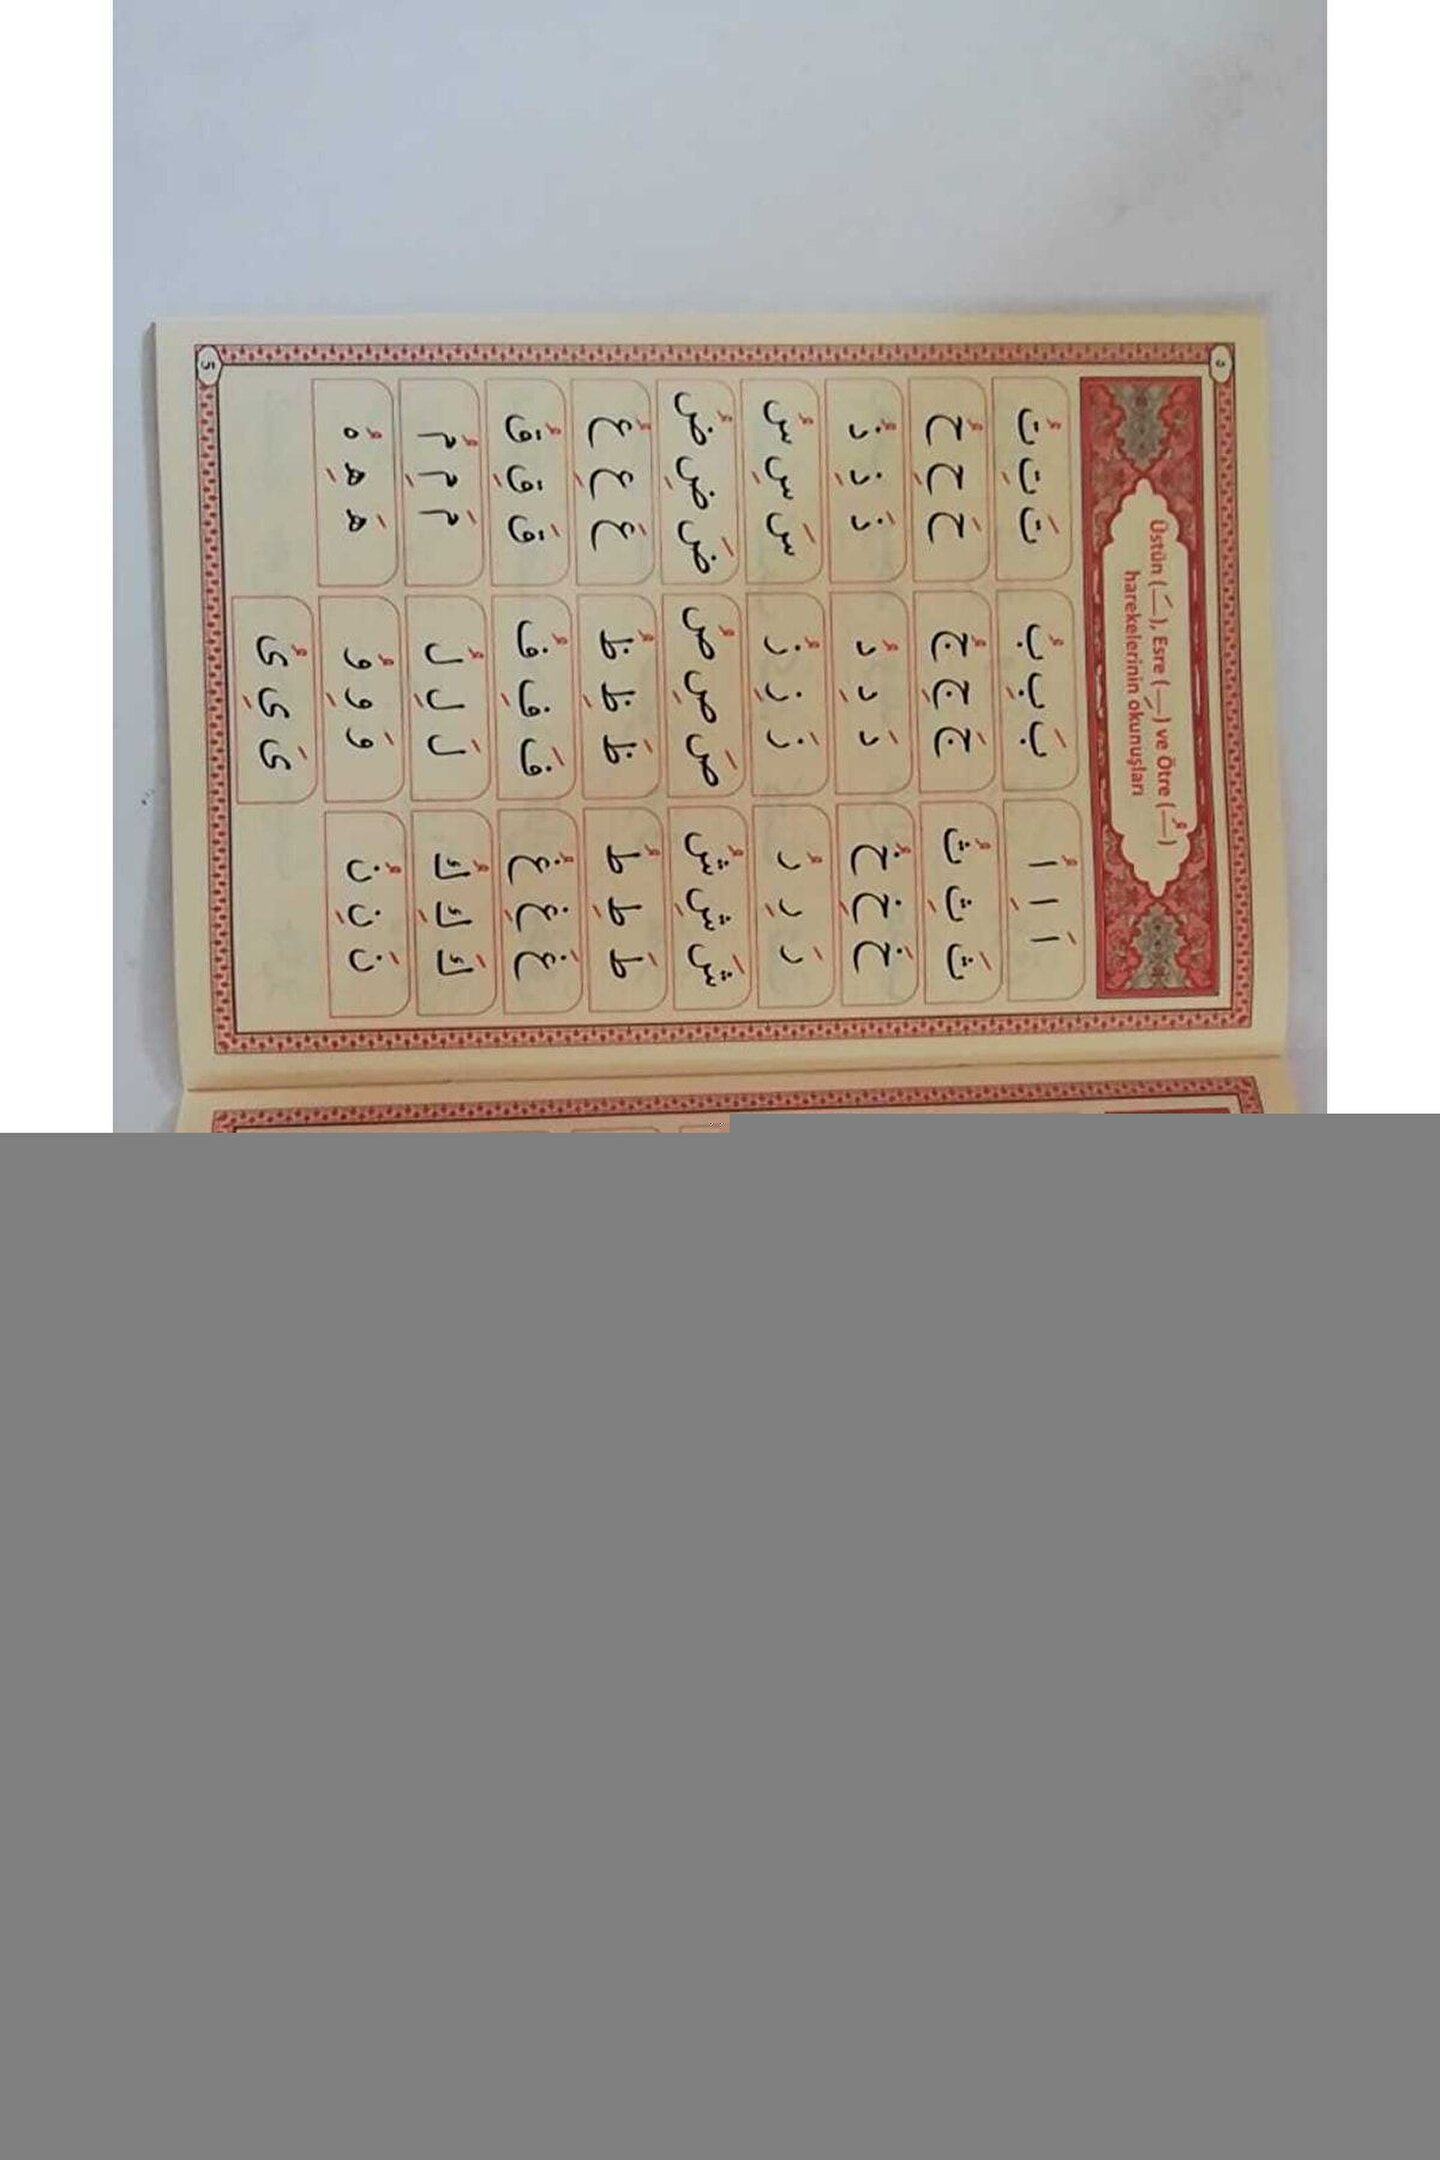 ٥
Üstün (ـَ), Esre (ـِ) ve Ötre (ـُ)
harekelerinin okunuşları
اَ اِ اُ بَ بِ بُ تَ تِ تُ
ثَ ثِ ثُ جَ جِ جُ حَ حِ حُ
خَ خِ خُ دَ دِ دُ ذَ ذِ ذُ
رَ رِ رُ زَ زِ زُ سَ سِ سُ
شَ شِ شُ صَ صِ صُ ضَ ضِ ضُ
طَ طِ طُ ظَ ظِ ظُ عَ عِ عُ
غَ غِ غُ فَ فِ فُ قَ قِ قُ
كَ كِ كُ لَ لِ لُ مَ مِ مُ
نَ نِ نُ وَ وِ وُ هَ هِ هُ
ىَ ىِ ىُ
5